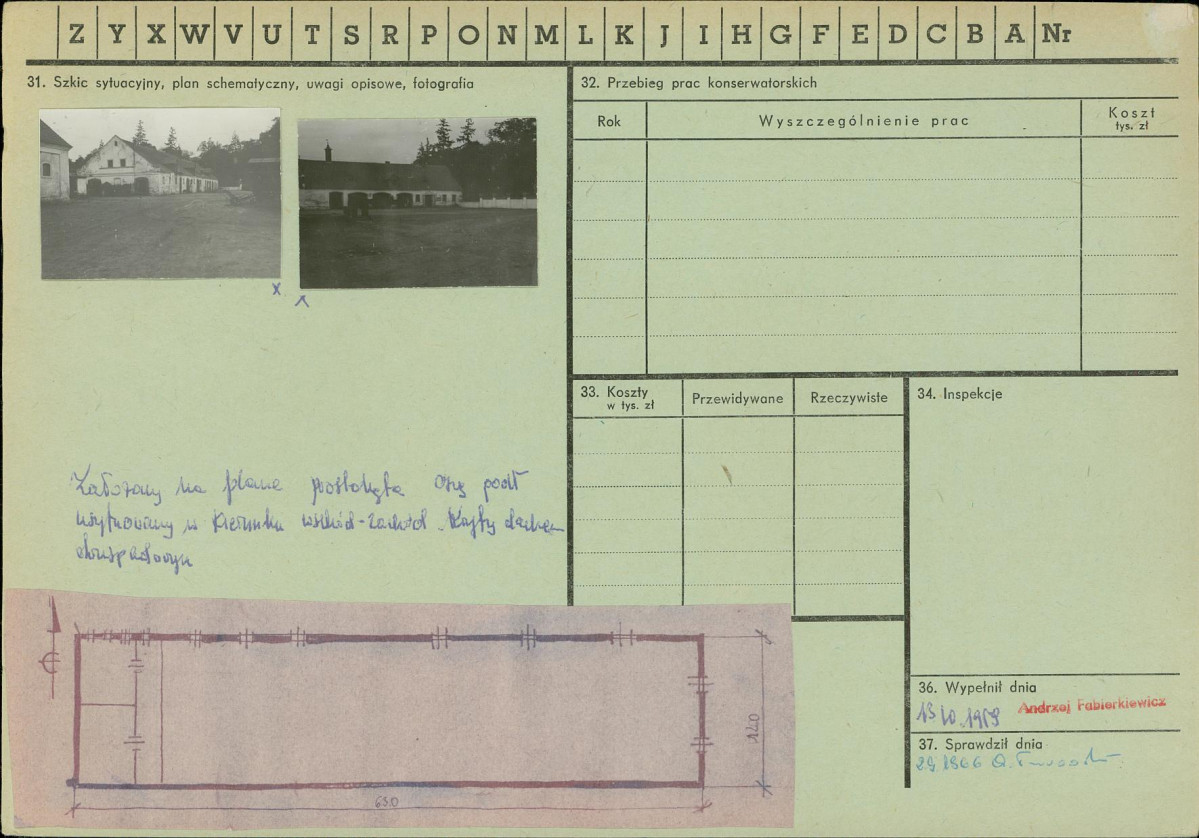 Z Y X W V U T S R P O N M L K J I H G F E D C B A Nr
31. Szkic sytuacyjny, plan schematyczny, uwagi opisowe, fotografia
x
Założony na planie prostokąta Osią podł
usytuowany w kierunku wschód-zachód. Kryty dachem
dwuspadowym
630
120
32. Przebieg prac konserwatorskich
Rok
Wyszczególnienie prac
Koszt
tys. zł
33. Koszty
w tys. zł
Przewidywane
Rzeczywiste
34. Inspekcje
36. Wypełnił dnia
Andrzej Fabierkiewicz
37. Sprawdził dnia